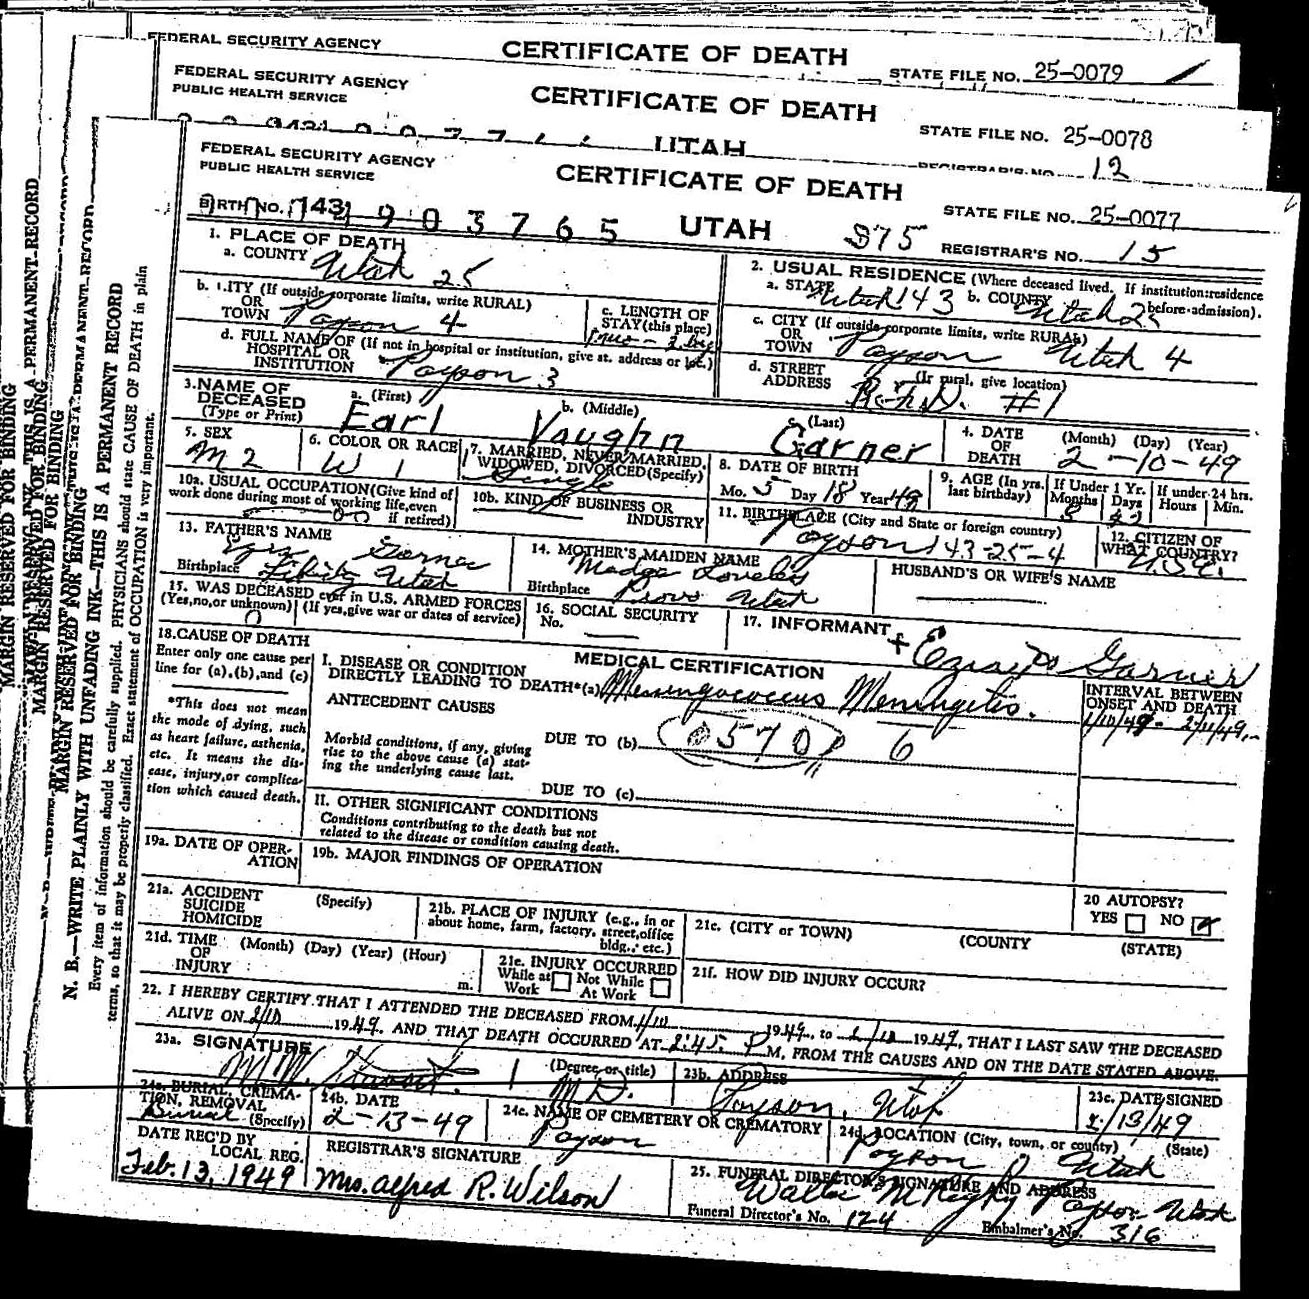 FEDERAL SECURITY AGENCY
CERTIFICATE OF DEATH
STATE FILE NO. 25-0079
FEDERAL SECURITY AGENCY
PUBLIC HEALTH SERVICE
CERTIFICATE OF DEATH
STATE FILE NO. 25-0078
UTAH
REGISTRAR'S NO. 12
FEDERAL SECURITY AGENCY
PUBLIC HEALTH SERVICE
CERTIFICATE OF DEATH
STATE FILE NO. 25-0077
BIRTH NO. 143 4903765
UTAH
875
REGISTRAR'S NO. 15
1. PLACE OF DEATH
a. COUNTY Utah 25
2. USUAL RESIDENCE (Where deceased lived. If institution: residence before admission).
a. STATE Utah 143 b. COUNTY Utah 25
b. CITY (If outside corporate limits, write RURAL)
OR
TOWN Payson 4
c. LENGTH OF
STAY (this place)
c. CITY (If outside corporate limits, write RURAL)
OR
TOWN Payson Utah 4
d. FULL NAME OF (If not in hospital or institution, give st. address or loc.)
HOSPITAL OR
INSTITUTION Payson 3
d. STREET
ADDRESS
(If rural, give location)
#1
3. NAME OF
DECEASED
(Type or Print)
a. (First)
Earl
b. (Middle)
Vaughn
(Last)
Garner
4. DATE
OF
DEATH
(Month) (Day) (Year)
2-10-49
5. SEX
M 2
6. COLOR OR RACE
W 1
7. MARRIED, NEVER MARRIED,
WIDOWED, DIVORCED (Specify)
Single
8. DATE OF BIRTH
Mo. 5 Day 18 Year 48
9. AGE (In yrs. last birthday)
If Under 1 Yr.
Months Days
8
If under 24 hrs.
Hours Min.
10a. USUAL OCCUPATION (Give kind of
work done during most of working life, even
if retired)
10b. KIND OF BUSINESS OR
INDUSTRY
11. BIRTHPLACE (City and State or foreign country)
Payson 143-25-4
12. CITIZEN OF
WHAT COUNTRY?
13. FATHER'S NAME
Garner
Birthplace Utah
14. MOTHER'S MAIDEN NAME
Madge Loveless
Birthplace Provo Utah
HUSBAND'S OR WIFE'S NAME
15. WAS DECEASED ever in U.S. ARMED FORCES
(Yes, no, or unknown) (If yes, give war or dates of service)
0
16. SOCIAL SECURITY
No.
17. INFORMANT
Garner
18. CAUSE OF DEATH
Enter only one cause per
line for (a), (b), and (c)
MEDICAL CERTIFICATION
I. DISEASE OR CONDITION
DIRECTLY LEADING TO DEATH*(a) Meningococcus Meningetis.
INTERVAL BETWEEN
ONSET AND DEATH
1/10/49 - 2/11/49
*This does not mean
the mode of dying, such
as heart failure, asthenia,
etc. It means the dis-
ease, injury, or complica-
tion which caused death.
ANTECEDENT CAUSES
Morbid conditions, if any, giving
rise to the above cause (a) stat-
ing the underlying cause last.
DUE TO (b) 0570 6
DUE TO (c)
II. OTHER SIGNIFICANT CONDITIONS
Conditions contributing to the death but not
related to the disease or condition causing death.
19a. DATE OF OPER-
ATION
19b. MAJOR FINDINGS OF OPERATION
20 AUTOPSY?
YES NO
21a. ACCIDENT
SUICIDE
HOMICIDE
(Specify)
21b. PLACE OF INJURY (e.g., in or
about home, farm, factory, street, office
bldg., etc.)
21c. (CITY or TOWN) (COUNTY (STATE)
21d. TIME
OF
INJURY
(Month) (Day) (Year) (Hour)
m.
21e. INJURY OCCURRED
While at Work Not While At Work
21f. HOW DID INJURY OCCUR?
22. I HEREBY CERTIFY THAT I ATTENDED THE DECEASED FROM 1/10 1949, to 2/10 1949, THAT I LAST SAW THE DECEASED
ALIVE ON 2/10 1949, AND THAT DEATH OCCURRED AT 2:45 P M, FROM THE CAUSES AND ON THE DATE STATED ABOVE.
23a. SIGNATURE
(Degree or title)
M.D.
23b. ADDRESS
Payson, Utah
23c. DATE SIGNED
2/13/49
24a. BURIAL, CREMA-
TION, REMOVAL
Burial (Specify)
24b. DATE
2-13-49
24c. NAME OF CEMETERY OR CREMATORY
Payson
24d. LOCATION (City, town, or county) (State)
Payson Utah
DATE REC'D BY
LOCAL REG.
Feb. 13, 1949
REGISTRAR'S SIGNATURE
Mrs. Alfred R. Wilson
25. FUNERAL DIRECTOR'S SIGNATURE AND ADDRESS
Payson Utah
Funeral Director's No. 124
Embalmer's No. 316
MARGIN RESERVED FOR BINDING
N. B.—WRITE PLAINLY WITH UNFADING INK—THIS IS A PERMANENT RECORD
Every item of information should be carefully supplied. PHYSICIANS should state CAUSE OF DEATH in plain
terms, so that it may be properly classified. Exact statement of OCCUPATION is very important.